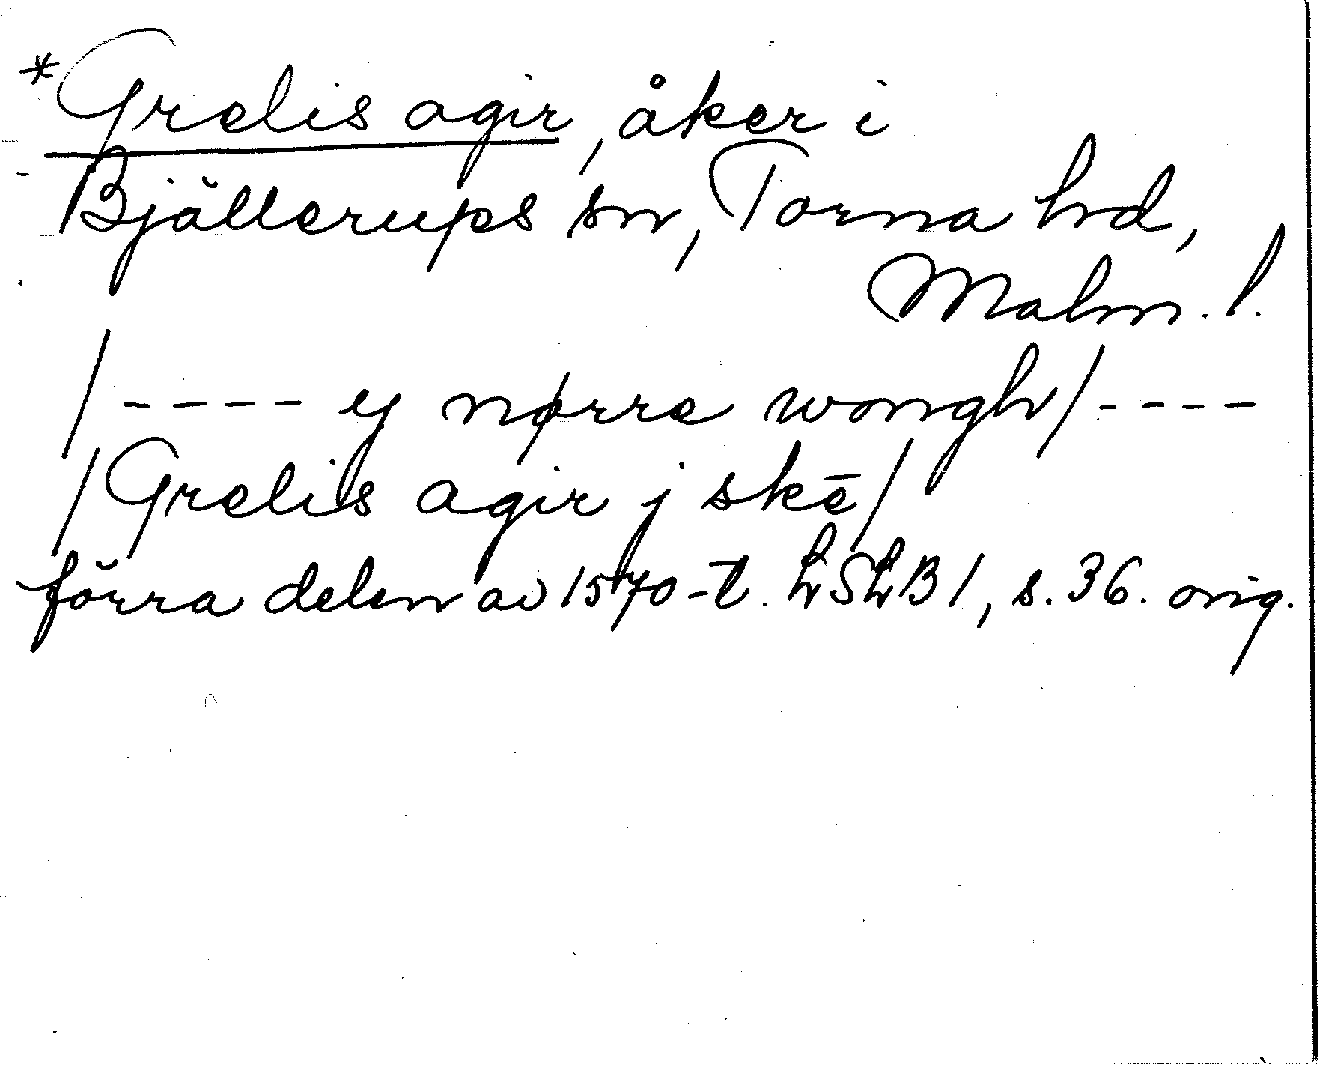 *Grelis agir, åker i
Bjällerups sn, Torna hd,
Malm. l.
/---- y nørre wongh/----
/Grelis agir j skē/
förra delen av 1570-t. LSLB 1, s. 36. orig.